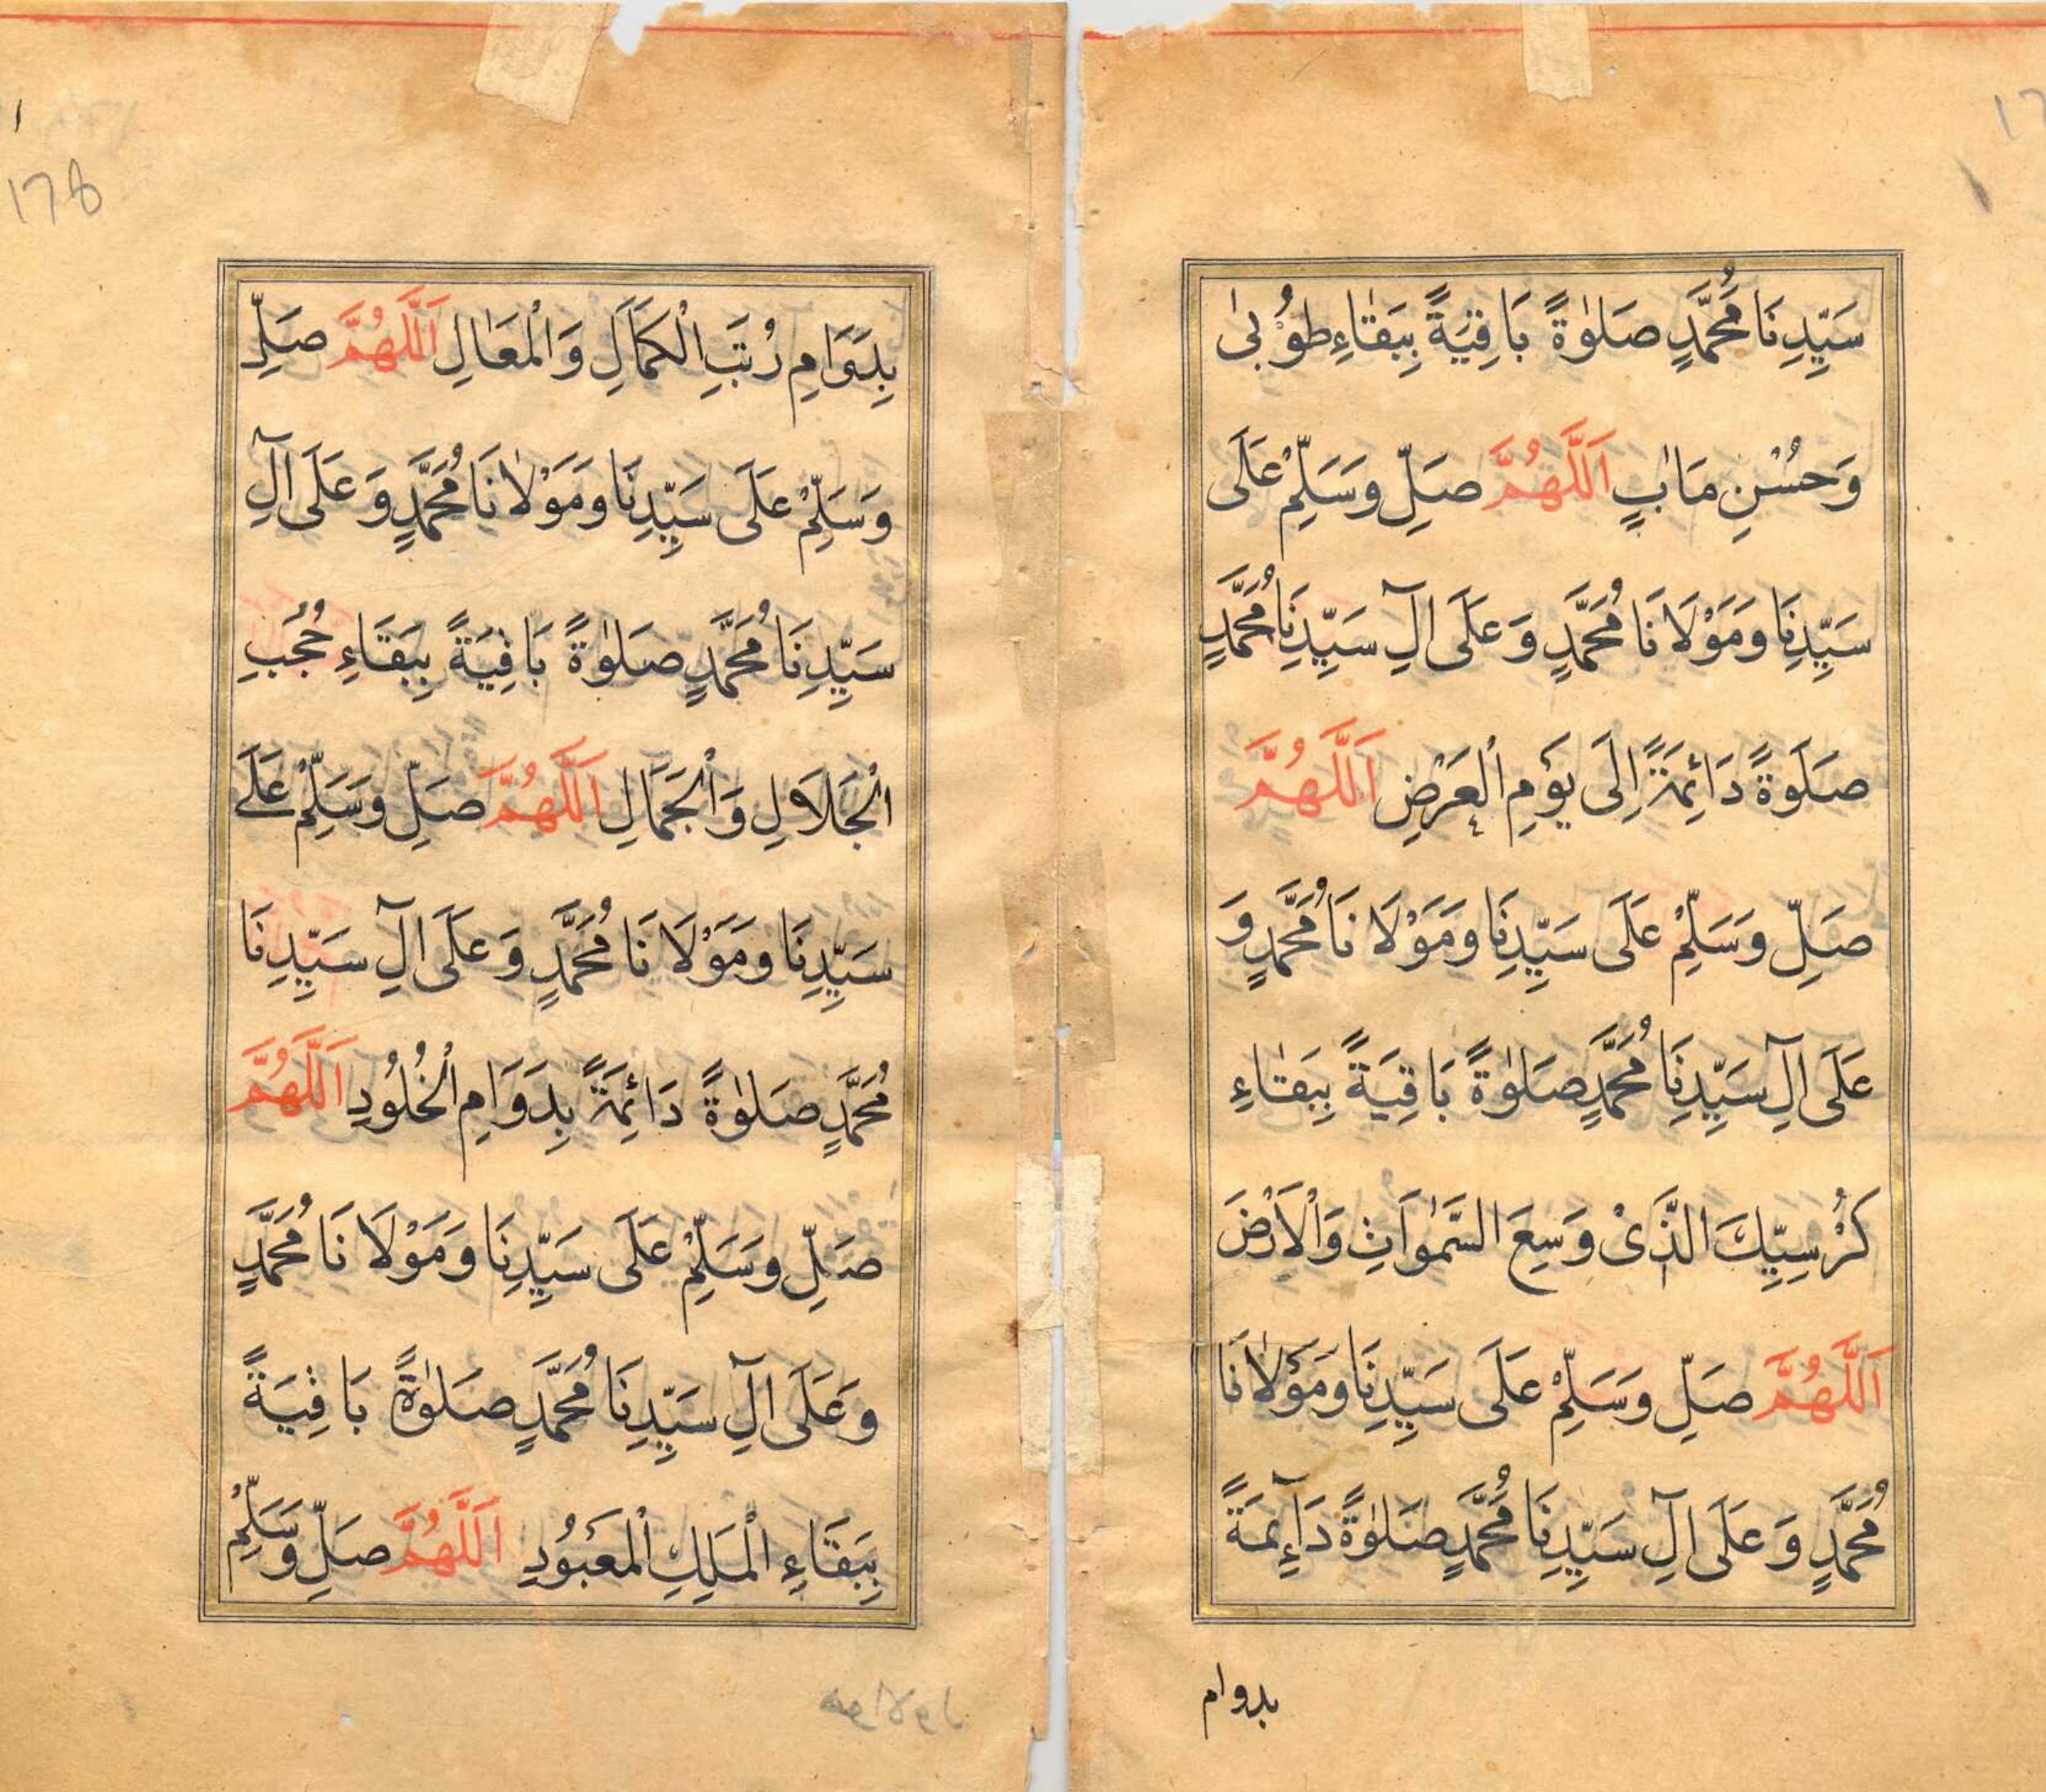 سَيِّدِنَا مُحَمَّدٍ صَلٰوةً بَاقِيَةً بِبَقَاءِ طُوْبٰى
وَحُسْنِ مَاٰبٍ اَللّٰهُمَّ صَلِّ وَسَلِّمْ عَلَى
سَيِّدِنَا وَمَوْلَانَا مُحَمَّدٍ وَعَلَى اٰلِ سَيِّدِنَا مُحَمَّدٍ
صَلٰوةً دَائِمَةً اِلَى يَوْمِ الْعَرْضِ اَللّٰهُمَّ
صَلِّ وَسَلِّمْ عَلَى سَيِّدِنَا وَمَوْلَانَا مُحَمَّدٍ وَ
عَلَى اٰلِ سَيِّدِنَا مُحَمَّدٍ صَلٰوةً بَاقِيَةً بِبَقَاءِ
كُرْسِيِّكَ الَّذِىْ وَسِعَ السَّمٰوَاتِ وَالْاَرْضَ
اَللّٰهُمَّ صَلِّ وَسَلِّمْ عَلَى سَيِّدِنَا وَمَوْلَانَا
مُحَمَّدٍ وَعَلَى اٰلِ سَيِّدِنَا مُحَمَّدٍ صَلٰوةً دَآئِمَةً
بدوام
178
بِدَوَامِ رُتَبِ الْكَمَالِ وَالْمَعَالِ اَللّٰهُمَّ صَلِّ
وَسَلِّمْ عَلَى سَيِّدِنَا وَمَوْلَانَا مُحَمَّدٍ وَعَلَى اٰلِ
سَيِّدِنَا مُحَمَّدٍ صَلٰوةً بَاقِيَةً بِبَقَاءِ حُجُبِ
الْجَلَالِ وَالْجَمَالِ اَللّٰهُمَّ صَلِّ وَسَلِّمْ عَلَى
سَيِّدِنَا وَمَوْلَانَا مُحَمَّدٍ وَعَلَى اٰلِ سَيِّدِنَا
مُحَمَّدٍ صَلٰوةً دَائِمَةً بِدَوَامِ الْخُلُوْدِ اَللّٰهُمَّ
صَلِّ وَسَلِّمْ عَلَى سَيِّدِنَا وَمَوْلَانَا مُحَمَّدٍ
وَعَلَى اٰلِ سَيِّدِنَا مُحَمَّدٍ صَلٰوةً بَاقِيَةً
بِبَقَاءِ الْمَلِكِ الْمَعْبُوْدِ اَللّٰهُمَّ صَلِّ وَسَلِّمْ